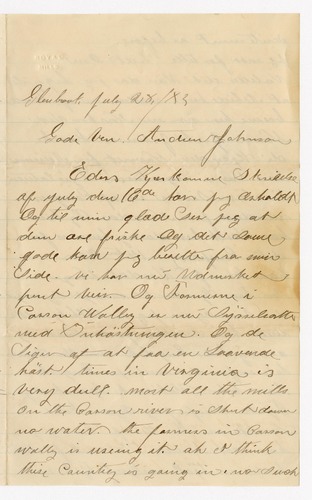 Glenbrook July 28/83
Gode Ven. Andrew Johnson
Eders Kjerkomne Skrivelse
af July den 16de har jeg erholdt
Og til min glade Ser jeg at
dem are friske Og det Same
gode kan jeg berette fra min
Side. vi har nu Udmarket
pent Veir. Og Farmerne i
Carson Walley er nu Sysselsatte
med Inhöstningen. Og de
Siger af at faa en Lovende
höst times in Virginia is
very dull. most all the mills
on the Carson river is Shut down
no water. the farmers in Carson
vally is useing it. ah I think
this Countiey is going in. no such